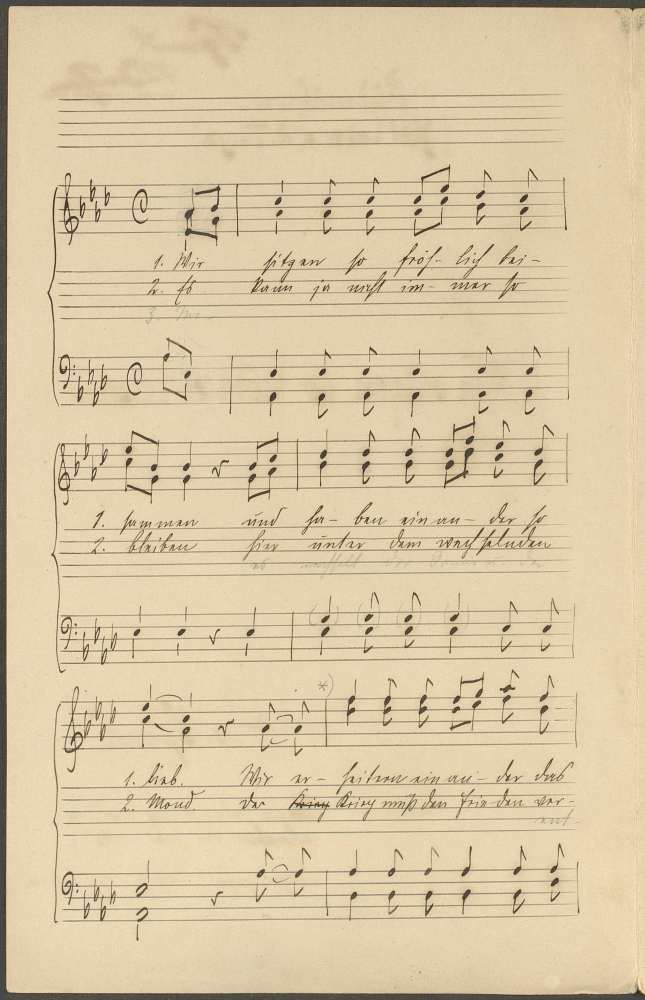 1. Wir sitzen so fröh- lich bei-
2. Es kann ja nicht im- mer so
3.
1. sammen und ha- ben ein an- der so
2. bleiben hier unter dem wechselnden
es wechselt der
*)
1. lieb. Wir er- heitern ein an- der das
2. Mond. Der Krieg Krieg muß den Frie den ver-
ent-